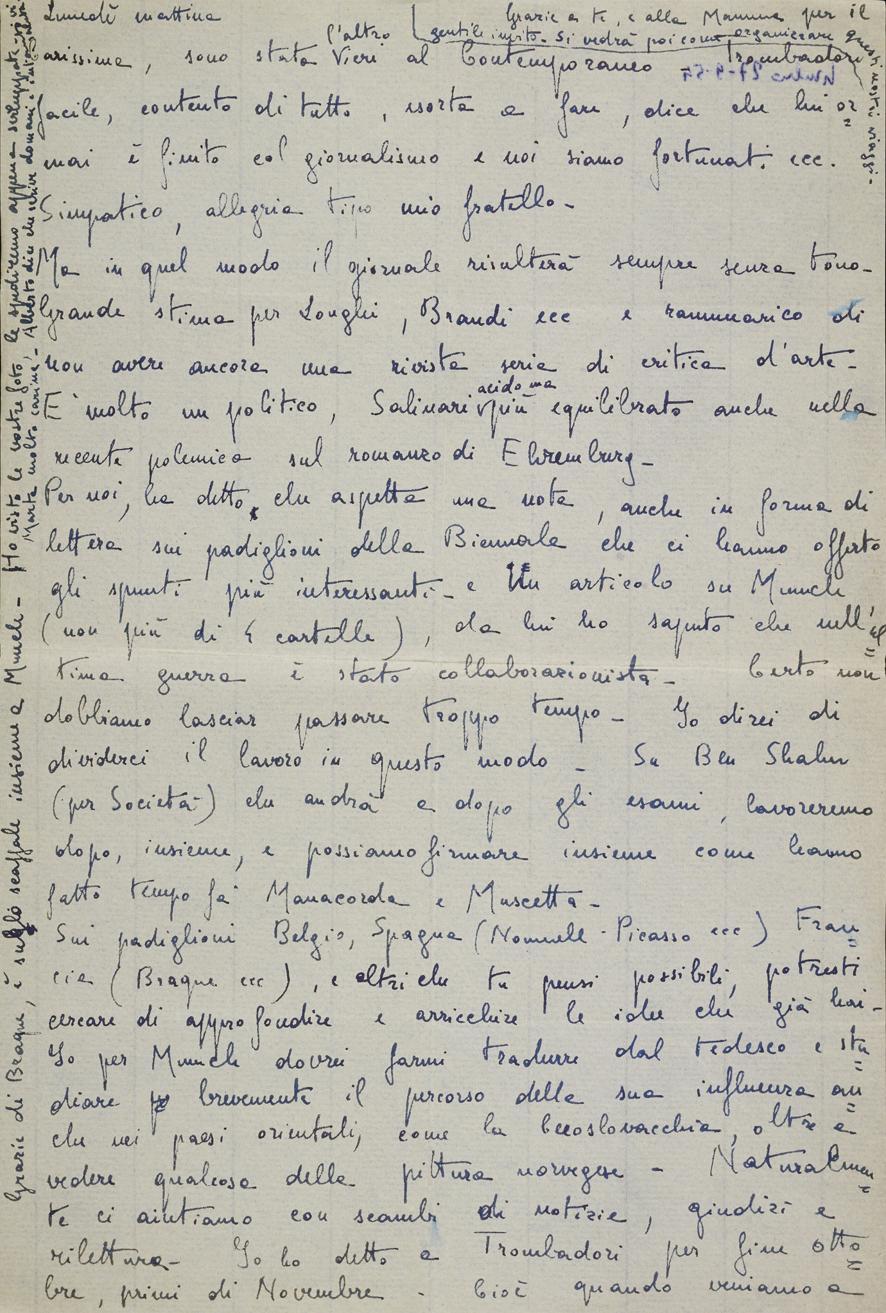 Lunedì mattina
Grazie a te, e alla Mamma per il
gentile invito. Si vedrà poi come organizzare questi nostri viaggi.
arissima, sono stata l'altro ieri al Contemporaneo. Trombadori
facile, contento di tutto, esorta a fare, dice che lui or=
mai è finito col giornalismo e noi siamo fortunati ecc.
Simpatico, allegria tipo mio fratello.
Ma in quel modo il giornale risulterà sempre senza tono.
Grande stima per Longhi, Brandi ecc e rammarico di
non avere ancora una rivista seria di critica d'arte.
E' molto un politico, Salinari acido ma più equilibrato anche nella
recente polemica sul romanzo di Ehremburg.
Per noi, ha detto, che aspetta una nota, anche in forma di
lettera sui padiglioni della Biennale che ci hanno offerto
gli spunti più interessanti. e Un articolo su Munch
(non più di 4 cartelle), da lui ho saputo che nell'ul=
tima guerra è stato collaborazionista. Certo non
dobbiamo lasciar passare troppo tempo. Io direi di
dividerci il lavoro in questo modo. Su Ben Shahn
(per Società) che andrà a dopo gli esami, lavoreremo
dopo, insieme, e possiamo firmare insieme come hanno
fatto tempo fa Manacorda e Muscetta.
Sui padiglioni Belgio, Spagna (Nonnell-Picasso ecc) Fran=
cia (Braque ecc), e altri che tu pensi possibili, potresti
cercare di approfondire e arricchire le idee che già hai.
Io per Munch dovrei farmi tradurre dal tedesco e stu=
diare brevemente il percorso della sua influenza an=
che nei paesi orientali, come la Cecoslovacchia, oltre a
vedere qualcosa della pittura norvegese. Naturalmen=
te ci aiutiamo con scambi di notizie, giudizi e
rilettura. Io ho detto a Trombadori per fine otto=
bre, primi di Novembre. Cioè quando veniamo a
Grazie di Braque, è sullo scaffale insieme a Munch. Ho visto le vostre foto, le spediremo appena sviluppate
Marta molto carina. Alberto dice che scrive domani